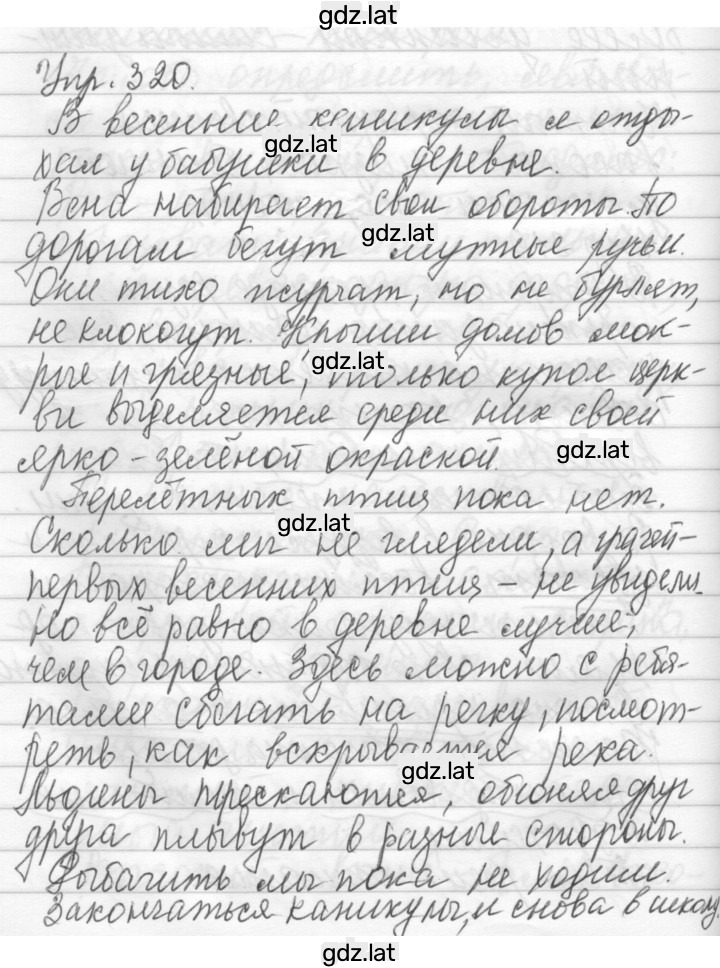 gdz.lat
Упр. 320.
В весенние каникулы я отды-
gdz.lat
хал у бабушки в деревне.
Весна набирает свои обороты. По
gdz.lat
дорогам бегут мутные ручьи.
Они тихо журчат, но не бурлят,
не клокочут. Крыши домов мок-
gdz.lat
рые и грязные, только купол церк-
ви выделяется среди них своей
gdz.lat
ярко-зелёной окраской.
Перелётных птиц пока нет.
gdz.lat
Сколько мы не глядели, а грачей-
первых весенних птиц - не увидели.
Но всё равно в деревне лучше,
чем в городе. Здесь можно с ребя-
тами сбегать на речку, посмот-
реть, как вскрывается река.
gdz.lat
Льдины трескаются, обгоняя друг
друга плывут в разные стороны.
Рыбачить мы пока не ходим.
Закончаться каникулы, и снова в школу.
gdz.lat